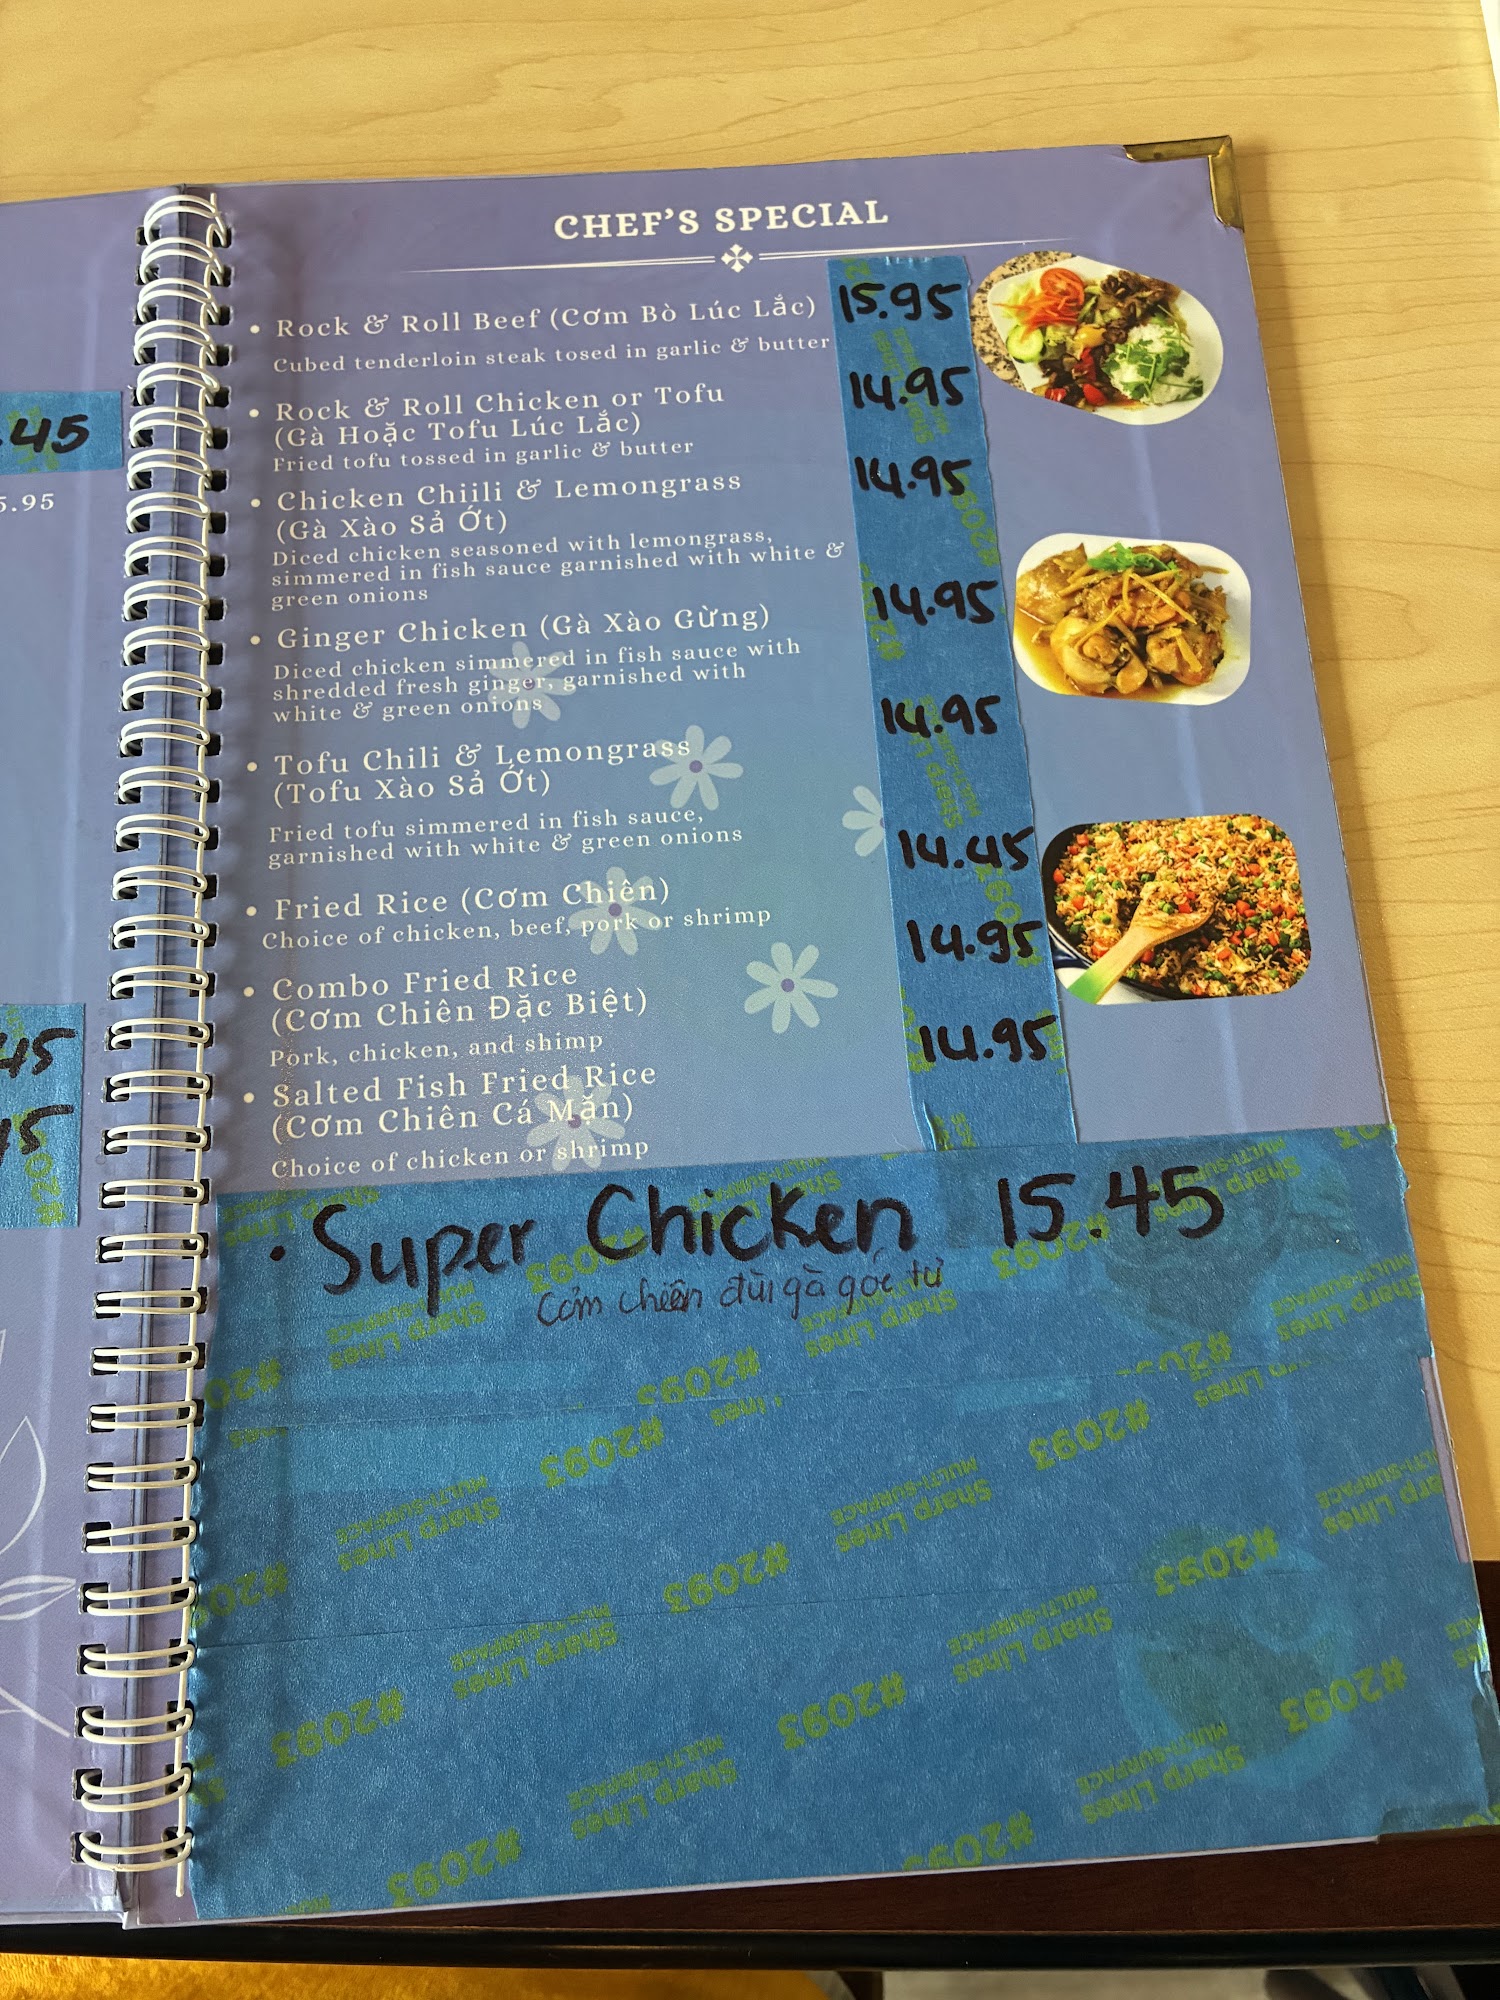 CHEF'S SPECIAL
• Rock & Roll Beef (Cơm Bò Lúc Lắc) 15.95
Cubed tenderloin steak tosed in garlic & butter
• Rock & Roll Chicken or Tofu 14.95
(Gà Hoặc Tofu Lúc Lắc)
Fried tofu tossed in garlic & butter
• Chicken Chiili & Lemongrass 14.95
(Gà Xào Sả Ớt)
Diced chicken seasoned with lemongrass,
simmered in fish sauce garnished with white &
green onions
• Ginger Chicken (Gà Xào Gừng) 14.95
Diced chicken simmered in fish sauce with
shredded fresh ginger, garnished with
white & green onions
• Tofu Chili & Lemongrass 14.95
(Tofu Xào Sả Ớt)
Fried tofu simmered in fish sauce,
garnished with white & green onions
• Fried Rice (Cơm Chiên) 14.45
Choice of chicken, beef, pork or shrimp
• Combo Fried Rice 14.95
(Cơm Chiên Đặc Biệt)
Pork, chicken, and shimp
• Salted Fish Fried Rice 14.95
(Cơm Chiên Cá Mặn)
Choice of chicken or shrimp
• Super Chicken 15.45
Cơm chiên đùi gà góc tư
.45
5.95
45
45
#2093
Sharp Lines
MULTI-SURFACE